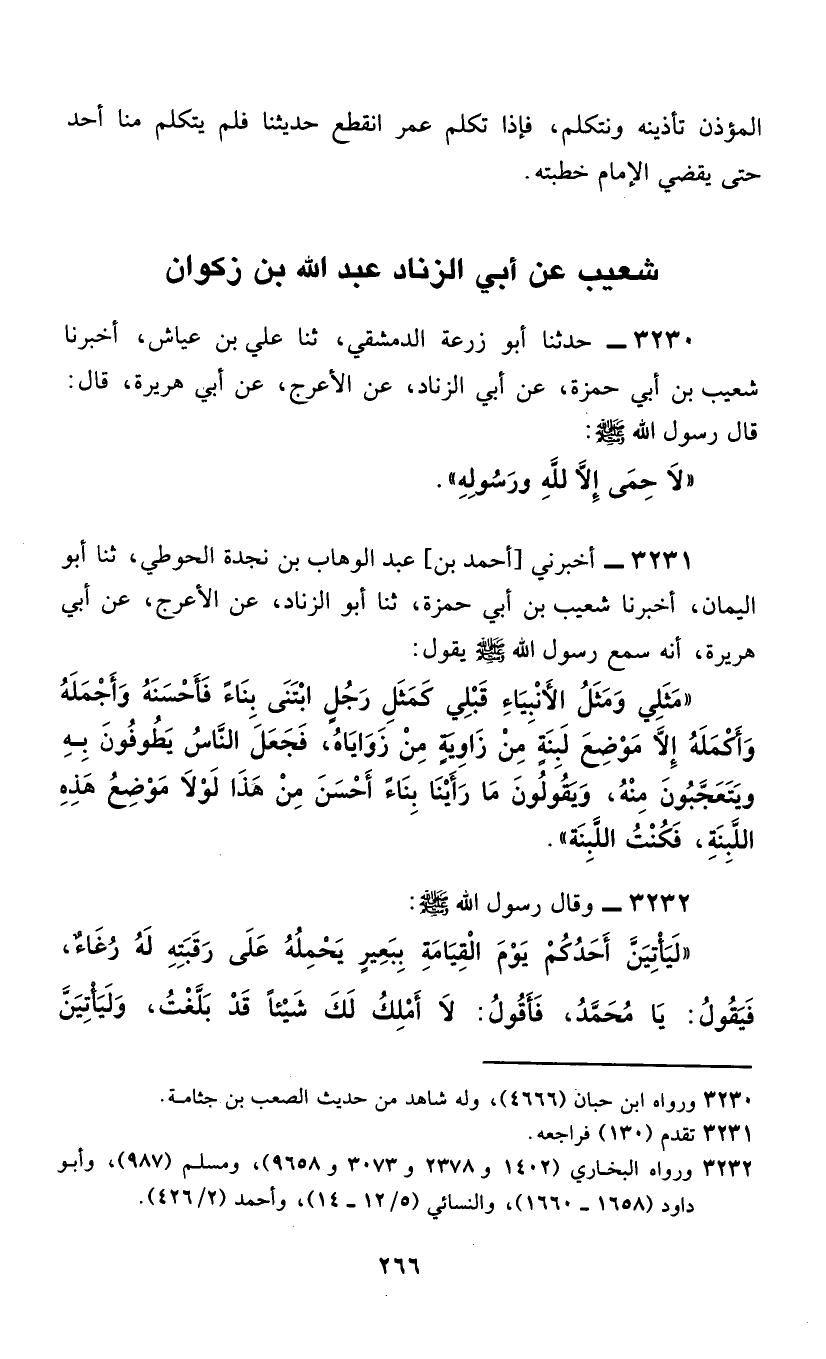 المؤذن تأذينه ونتكلم، فإذا تكلم عمر انقطع حديثنا فلم يتكلم منا أحد
حتى يقضي الإمام خطبته.
شعيب عن أبي الزناد عبد الله بن زكوان
٣٢٣٠ ـ حدثنا أبو زرعة الدمشقي، ثنا علي بن عياش، أخبرنا
شعيب بن أبي حمزة، عن أبي الزناد، عن الأعرج، عن أبي هريرة، قال:
قال رسول الله ﷺ:
«لَا حِمَى إِلَّا للَّهِ ورَسُولِهِ».
٣٢٣١ ـ أخبرني [أحمد بن] عبد الوهاب بن نجدة الحوطي، ثنا أبو
اليمان، أخبرنا شعيب بن أبي حمزة، ثنا أبو الزناد، عن الأعرج، عن أبي
هريرة، أنه سمع رسول الله ﷺ يقول:
«مَثَلِي وَمَثَلُ الأَنْبِيَاءِ قَبْلِي كَمَثَلِ رَجُلٍ ابْتَنَى بِنَاءً فَأَحْسَنَهُ وَأَجْمَلَهُ
وَأَكْمَلَهُ إِلَّا مَوْضِعَ لَبِنَةٍ مِنْ زَاوِيَةٍ مِنْ زَوَايَاهُ، فَجَعَلَ النَّاسُ يَطُوفُونَ بِـهِ
ويَتَعَجَّبُونَ مِنْهُ، وَيَقُولُونَ مَا رَأَيْنَا بِنَاءً أَحْسَنَ مِنْ هَذَا لَوْلاَ مَوْضِعُ هَذِهِ
اللَّبِنَةِ، فَكُنْتُ اللَّبِنَة».
٣٢٣٢ ـ وقال رسول الله ﷺ:
«لَيَأْتِيَنَّ أَحَدُكُمْ يَوْمَ الْقِيَامَةِ بِبَعِيرٍ يَحْمِلُهُ عَلَى رَقَبَتِهِ لَهُ رُغَاءٌ،
فَيَقُولُ: يَا مُحَمَّدُ، فَأَقُولُ: لاَ أَمْلِكُ لَكَ شَيْئاً قَدْ بَلَّغْتُ، وَلَيَأْتِيَنَّ
٣٢٣٠ ورواه ابن حبان (٤٦٦٦)، وله شاهد من حديث الصعب بن جثامـة.
٣٢٣١ تقدم (١٣٠) فراجعه.
٣٢٣٢ ورواه البخـاري (١٤٠٢ و ٢٣٧٨ و ٣٠٧٣ و ٩٦٥٨)، ومسلـم (٩٨٧)، وأبـو
داود (١٦٥٨ ـ ١٦٦٠)، والنسائي (١٢/٥ ـ ١٤)، وأحمد (٤٢٦/٢).
٢٦٦